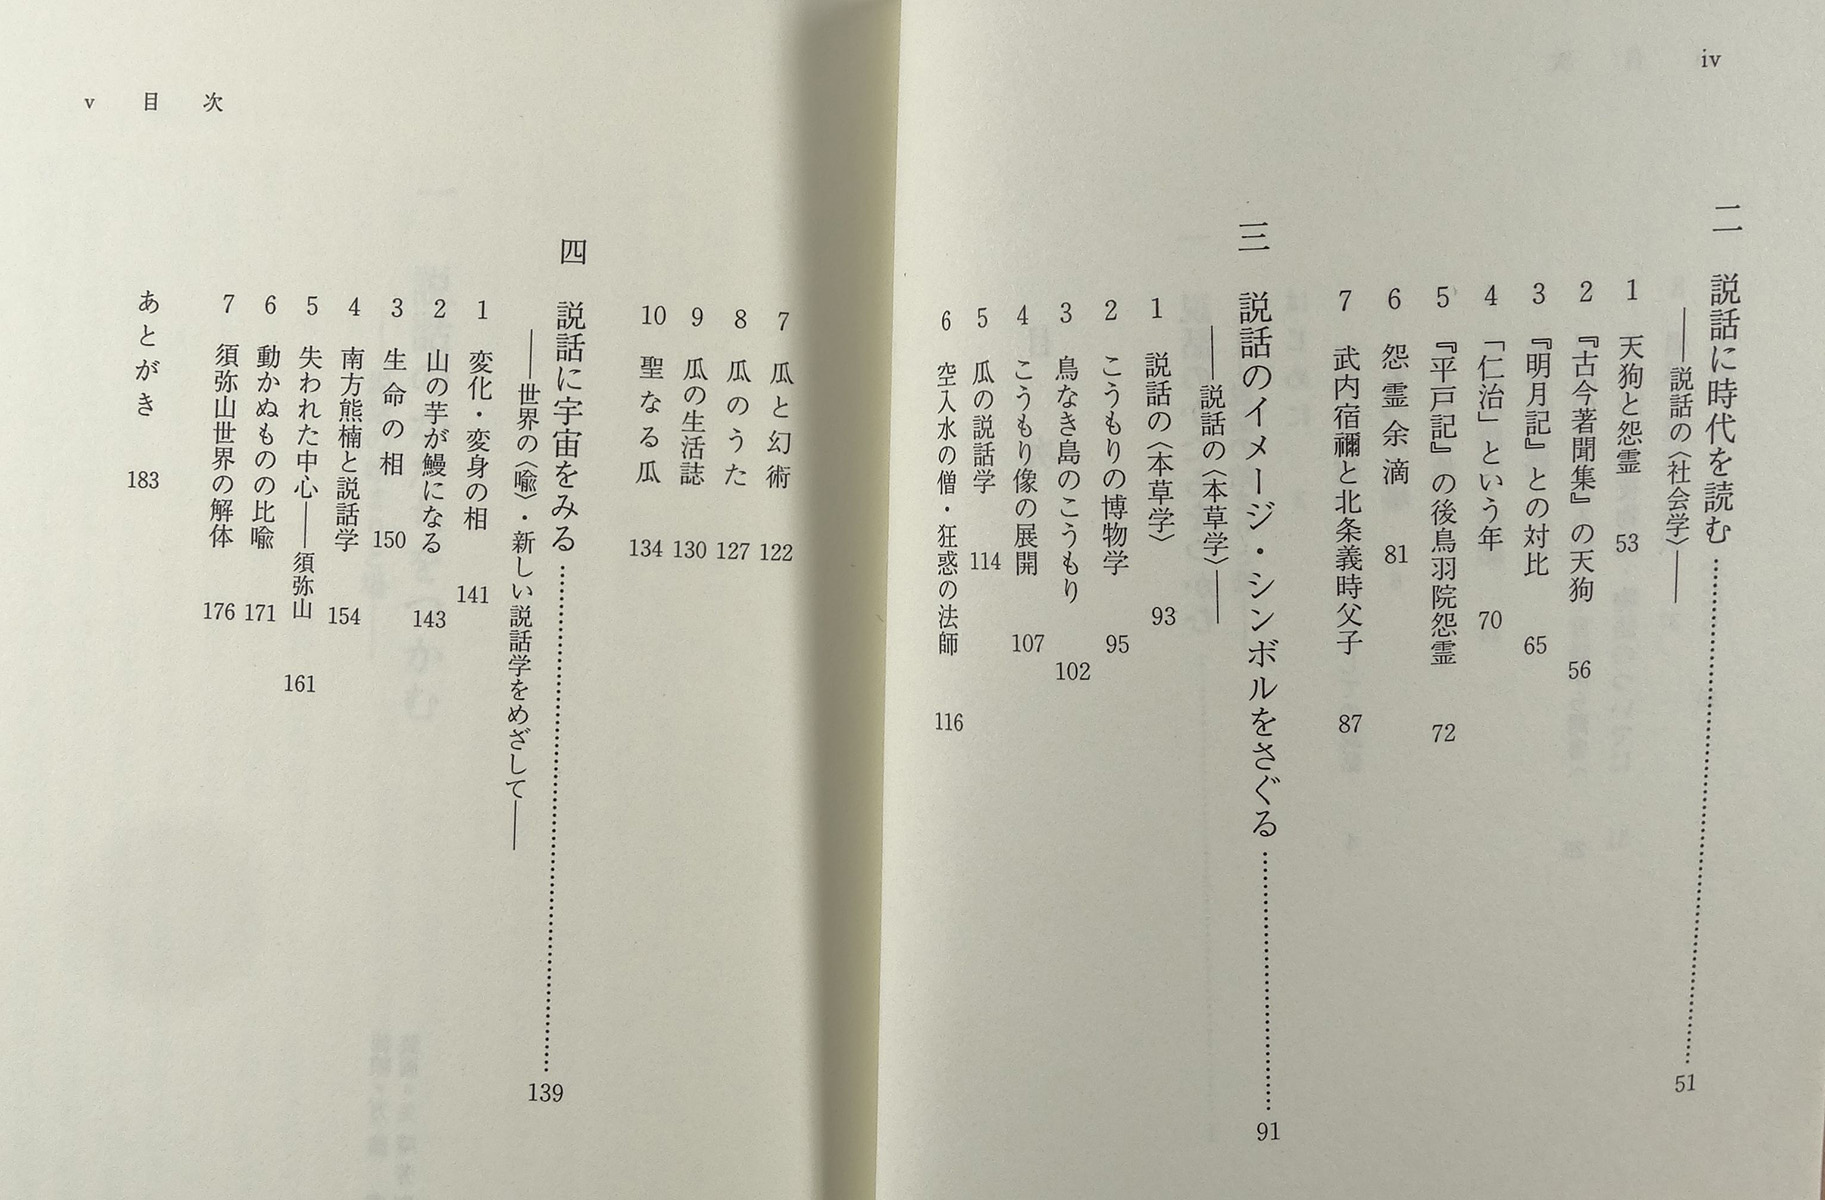 iv
二 説話に時代を読む……………………51
――説話の〈社会学〉――
1 天狗と怨霊 53
2 『古今著聞集』の天狗 56
3 『明月記』との対比 65
4 「仁治」という年 70
5 『平戸記』の後鳥羽院怨霊 72
6 怨霊余滴 81
7 武内宿禰と北条義時父子 87
三 説話のイメージ・シンボルをさぐる……………………91
――説話の〈本草学〉――
1 説話の〈本草学〉 93
2 こうもりの博物学 95
3 鳥なき島のこうもり 102
4 こうもり像の展開 107
5 瓜の説話学 114
6 空入水の僧・狂惑の法師 116
v 目次
7 瓜と幻術 122
8 瓜のうた 127
9 瓜の生活誌 130
10 聖なる瓜 134
四 説話に宇宙をみる……………………139
――世界の〈喩〉・新しい説話学をめざして――
1 変化・変身の相 141
2 山の芋が鰻になる 143
3 生命の相 150
4 南方熊楠と説話学 154
5 失われた中心――須弥山 161
6 動かぬものの比喩 171
7 須弥山世界の解体 176
あとがき 183